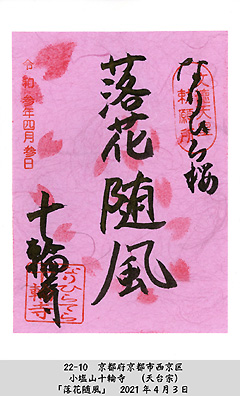 なりひら桜
勅願所
落花随風
令和参年四月参日
十輪寺
なりひらてら
22-10 京都府京都市西京区
小塩山十輪寺 (天台宗)
「落花随風」 2021年4月3日